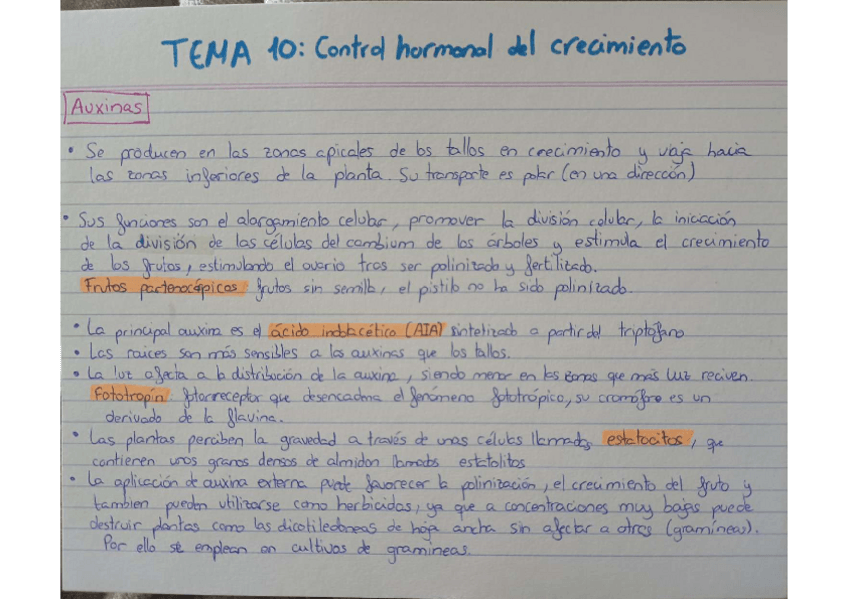 TEMA 10: Control hormonal del crecimiento
Auxinas
• Se producen en las zonas apicales de los tallos en crecimiento y viaja hacia
las zonas inferiores de la planta. Su transporte es polar (en una dirección)
• Sus funciones son el alargamiento celular, promover la división celular, la iniciación
de la división de las células del cambium de los árboles y estimula el crecimiento
de los frutos, estimulando el ovario tras ser polinizado y fertilizado.
Frutos partenocápicos frutos sin semilla, el pistilo no ha sido polinizado.
• La principal auxina es el ácido indolacético (AIA) sintetizado a partir del triptófano
• Las raices son más sensibles a las auxinas que los tallos.
• La luz afecta a la distribución de la auxina, siendo menor en las zonas que más luz reciven.
Fototropín fotorreceptor que desencadena el fenómeno fototrópico, su cromóforo es un
derivado de la flavina.
• Las plantas perciben la gravedad a través de unas células llamadas estatocitos, que
contienen unos granos densos de almidon llamados estatolitos
• La aplicación de auxina externa puede favorecer la polinización, el crecimiento del fruto y
tambien pueden utilizarse como herbicidas, ya que a concentraciones muy bajas puede
destruir plantas como las dicotiledoneas de hoja ancha sin afectar a otras (gramíneas).
Por ello se emplean en cultivos de gramineas.